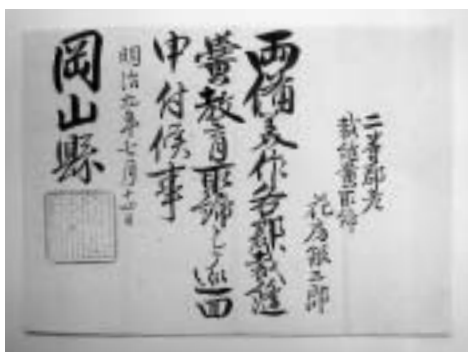 二等郡
裁縫黌取締
花房 三郎
両備美作各郡裁縫
黌教育取締として巡回
申付候事
明治九年七月十 日
岡山縣